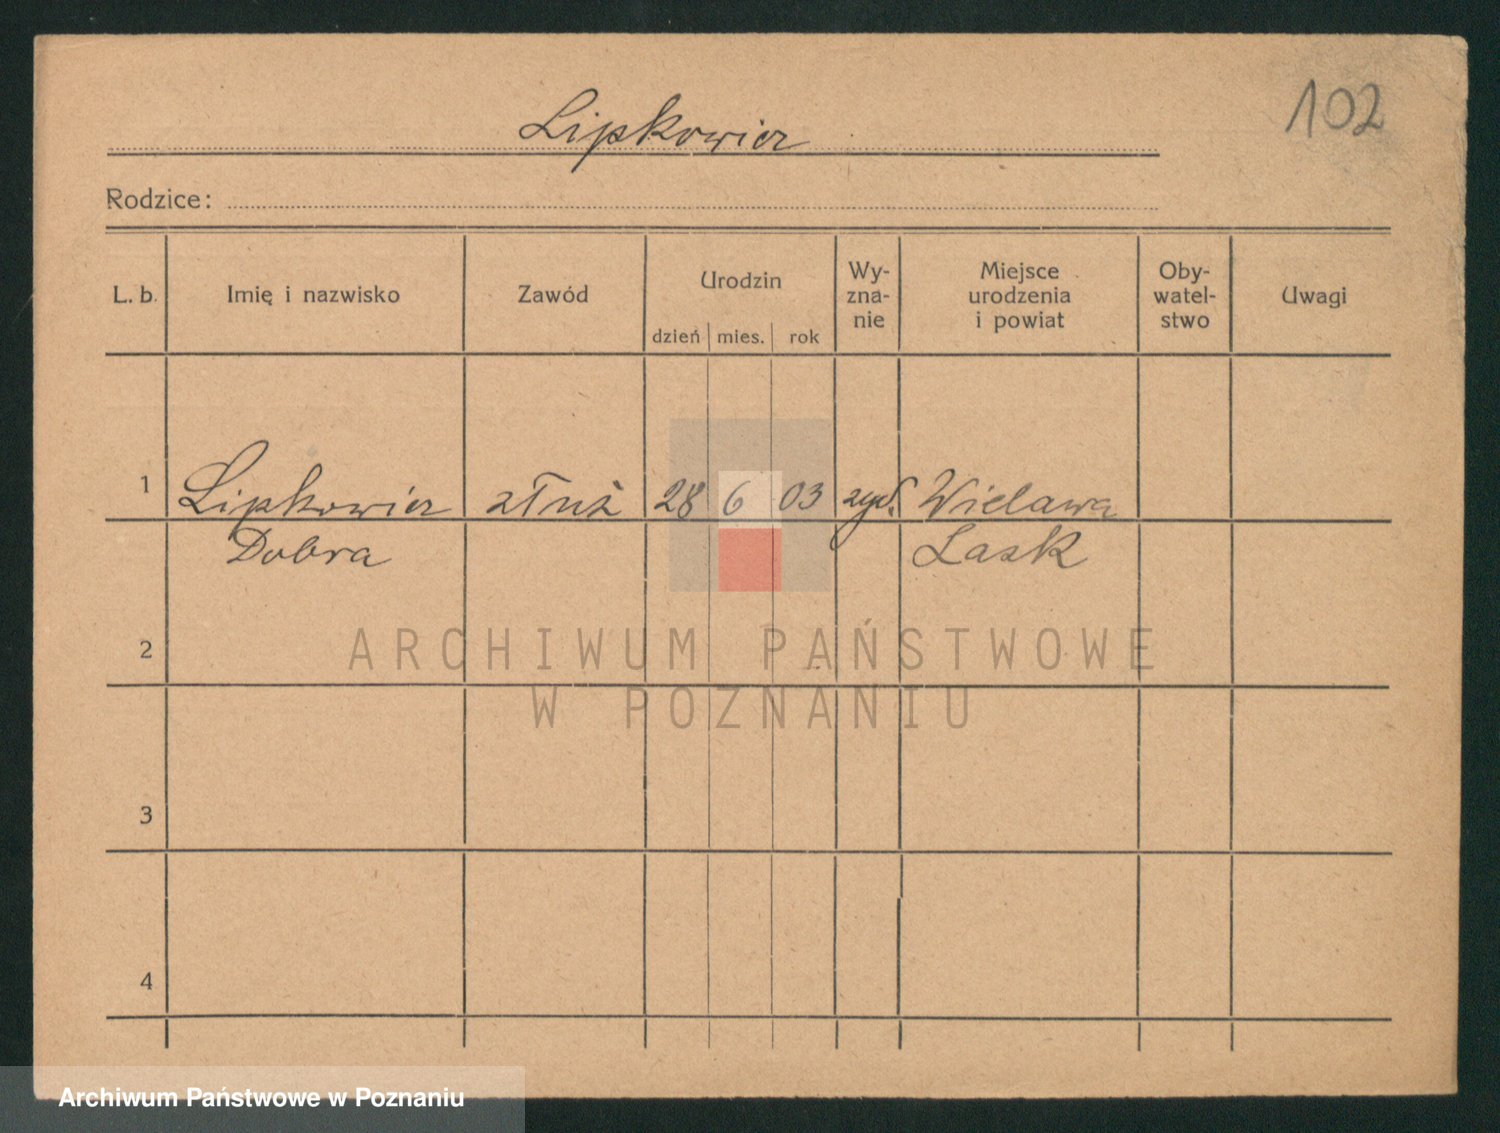 102
Lipkowicz
Rodzice:
L. b. Imię i nazwisko Zawód Urodzin dzień mies. rok Wy-zna-nie Miejsce urodzenia i powiat Oby-watel-stwo Uwagi
1 Lipkowicz 28 6 03 żyd. Wielawa
Dobra Lask
2
3
4
ARCHIWUM PAŃSTWOWE
W POZNANIU
Archiwum Państwowe w Poznaniu